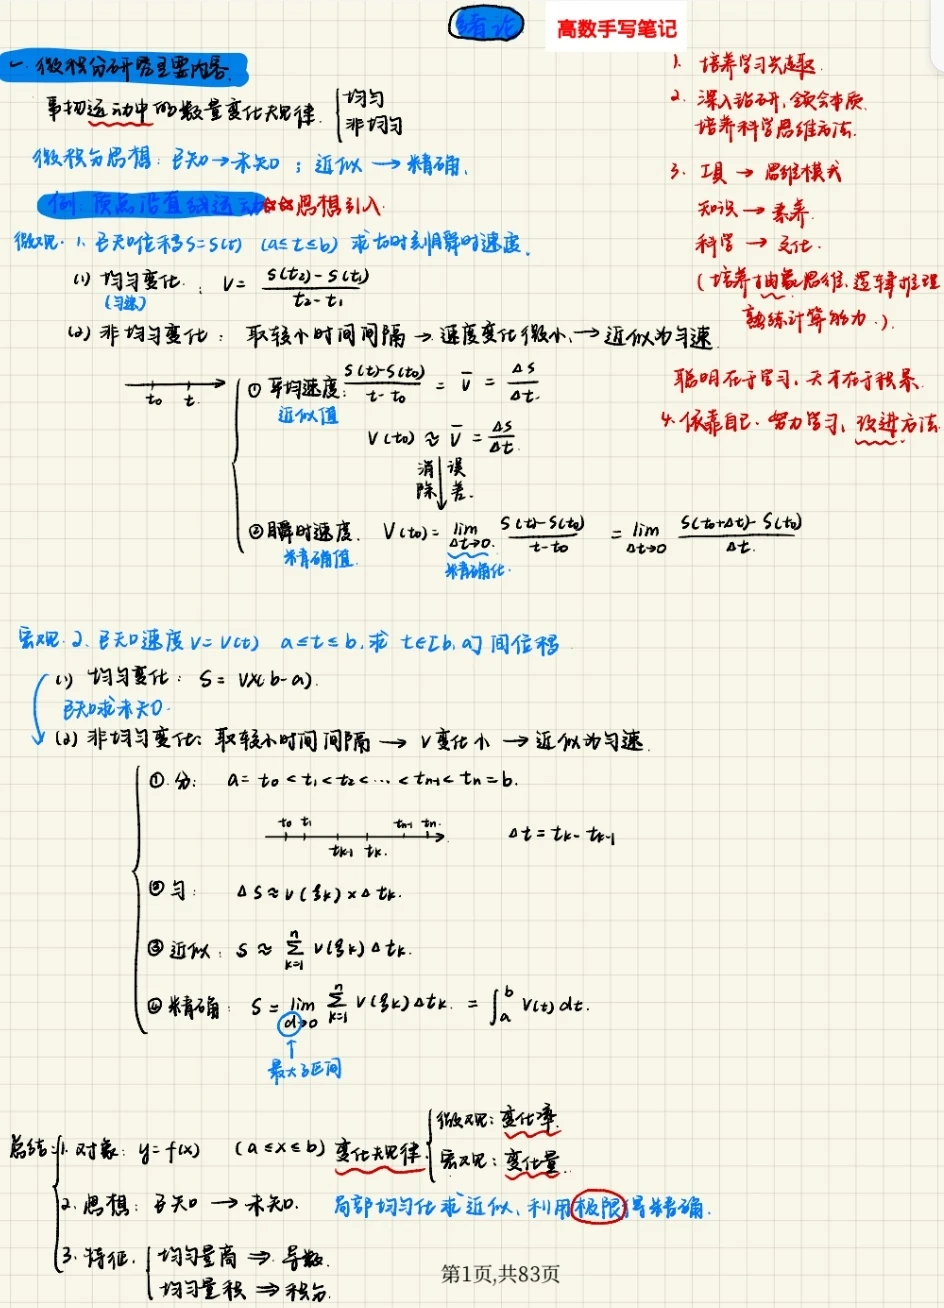 绪论
高数手写笔记
一. 微积分研究主要内容.
事物运动中的数量变化规律. { 均匀
非均匀
微积分思想: 已知→未知 ; 近似 → 精确.
例: 质点沿直线运动 ☆☆思想引入.
微观. 1. 已知位移S=S(t) (a≤t≤b) 求t0时刻瞬时速度.
(1) 均匀变化. : V= (S(t2)-S(t1))/(t2-t1)
(匀速)
(2) 非均匀变化: 取较小时间间隔 → 速度变化微小. → 近似为匀速
t0 t.
① 平均速度: (S(t)-S(t0))/(t-t0) = V̅ = ΔS/Δt.
近似值
V(t0) ≈ V̅ = ΔS/Δt.
消除 误差.
② 瞬时速度. V(t0)= lim Δt→0. (S(t)-S(t0))/(t-t0) = lim Δt→0 (S(t0+Δt)-S(t0))/Δt.
精确值. 精确化.
1. 培养学习兴趣.
2. 深入钻研, 领会本质.
培养科学思维方法.
3. 工具 → 思维模式
知识 → 素养.
科学 → 文化.
(培养抽象思维、逻辑推理
熟练计算能力.).
聪明在于学习, 天才在于积累.
4. 依靠自己. 努力学习, 改进方法.
宏观. 2. 已知速度V=V(t) a≤t≤b, 求 t∈[b,a]间位移
(1) 均匀变化: S= V×(b-a).
已知求未知.
(2) 非均匀变化: 取较小时间间隔 → V变化小 → 近似为匀速.
① 分: a= t0 < t1 < t2 < … < tn-1 < tn = b.
t0 t1 tn-1 tn.
tk-1 tk.
Δt = tk - tk-1
② 匀: ΔS ≈ v(ξk)×Δtk.
③ 近似: S ≈ ∑ k=1 n V(ξk)Δtk.
④ 精确: S = lim d→0 ∑ k=1 n V(ξk)Δtk. = ∫ a b V(t)dt.
↑
最大子区间
总结: { 1. 对象: y=f(x) (a≤x≤b) 变化规律 { 微观: 变化率.
宏观: 变化量.
2. 思想: 已知 → 未知. 局部均匀化求近似、利用极限得精确.
3. 特征. { 均匀量商 ⇒ 导数.
均匀量积 ⇒ 积分.
第1页,共83页